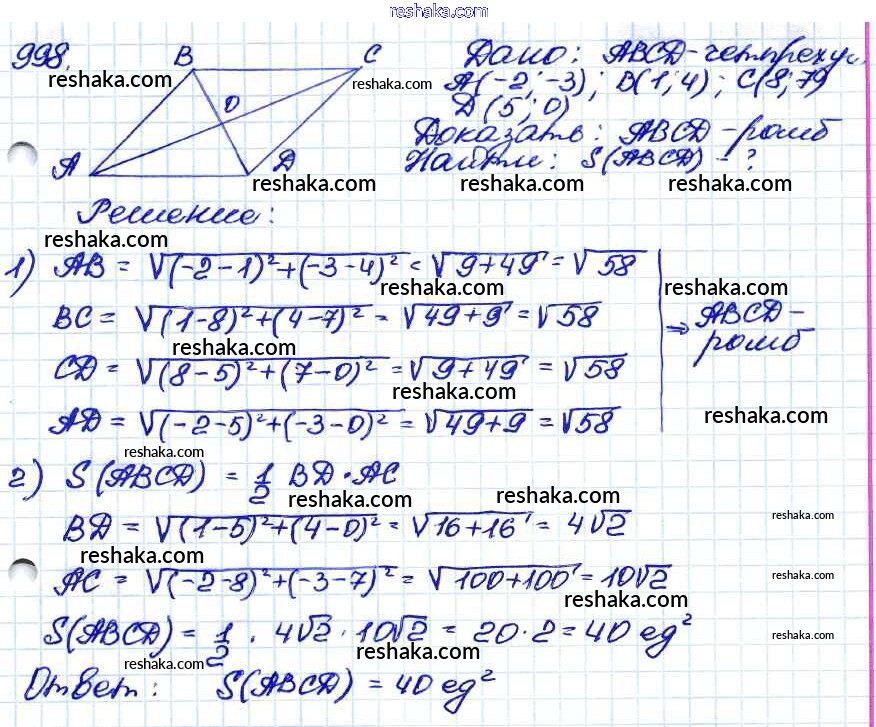 reshaka.com
998.
B C
Дано: ABCD-четыреху.
reshaka.com reshaka.com
A(-2;-3); B(1;4); C(8;7)
D(5;0)
O
reshaka.com
Доказать: ABCD-ромб
A D
Найти: S(ABCD) - ?
reshaka.com reshaka.com reshaka.com
Решение:
reshaka.com
1) AB = √(-2-1)²+(-3-4)² = √9+49 = √58
reshaka.com reshaka.com
BC = √(1-8)²+(4-7)² = √49+9 = √58 ⇒ ABCD-
ромб
reshaka.com
CD = √(8-5)²+(7-0)² = √9+49 = √58
reshaka.com
AD = √(-2-5)²+(-3-0)² = √49+9 = √58
reshaka.com
reshaka.com
2) S(ABCD) = 1/2 BD·AC
reshaka.com reshaka.com
BD = √(1-5)²+(4-0)² = √16+16 = 4√2
reshaka.com
reshaka.com
AC = √(-2-8)²+(-3-7)² = √100+100 = 10√2
reshaka.com
reshaka.com
S(ABCD) = 1/2 · 4√2 · 10√2 = 20·2 = 40 ед²
reshaka.com
reshaka.com reshaka.com
Ответ: S(ABCD) = 40 ед²
reshaka.com